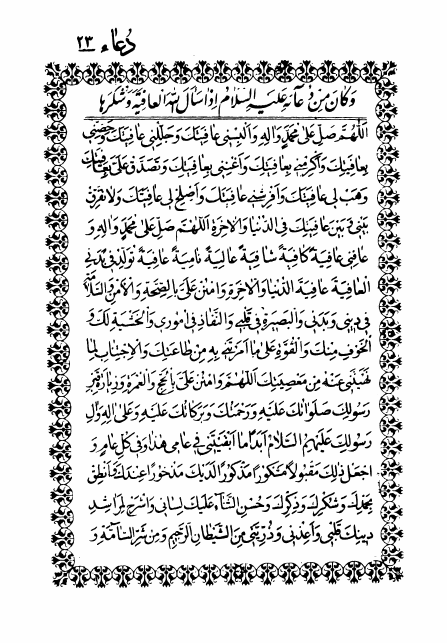 دعاء ٢٣
وكان من دعائه عليه السلام اذا سال الله العافية وشكرها
اللهم صل على محمد واله والبسنى عافيتك وجللنى عافيتك وحصنى
بعافيتك واكرمنى بعافيتك واغننى بعافيتك وتصدق على بعافيتك
وهب لى عافيتك وافرشنى عافيتك واصلح لى عافيتك ولا تفرق
بينى وبين عافيتك فى الدنيا والاخرة اللهم صل على محمد واله و
عافنى عافية كافية شافية عالية نامية عافية تولد فى بدنى
العافية عافية الدنيا والاخرة وامنن على بالصحة والامن والسلامة
فى دينى وبدنى والبصيرة فى قلبى والنفاذ فى امورى والخشية لك و
الخوف منك والقوة على ما امرتنى به من طاعتك والاجتناب لما
نهيتنى عنه من معصيتك اللهم وامنن على بالحج والعمرة وزيارة قبر
رسولك صلواتك عليه ورحمتك وبركاتك عليه وعلى اله وال
رسولك عليهم السلام ابدا ما ابقيتنى فى عامى هذا وفى كل عام و
اجعل ذلك مقبولا مشكورا مذكورا لديك مذخورا عندك وانطق
بحمدك وشكرك وذكرك وحسن الثناء عليك لسانى واشرح لمراشد
دينك قلبى واعذنى وذريتى من الشيطان الرجيم ومن شر السامة و